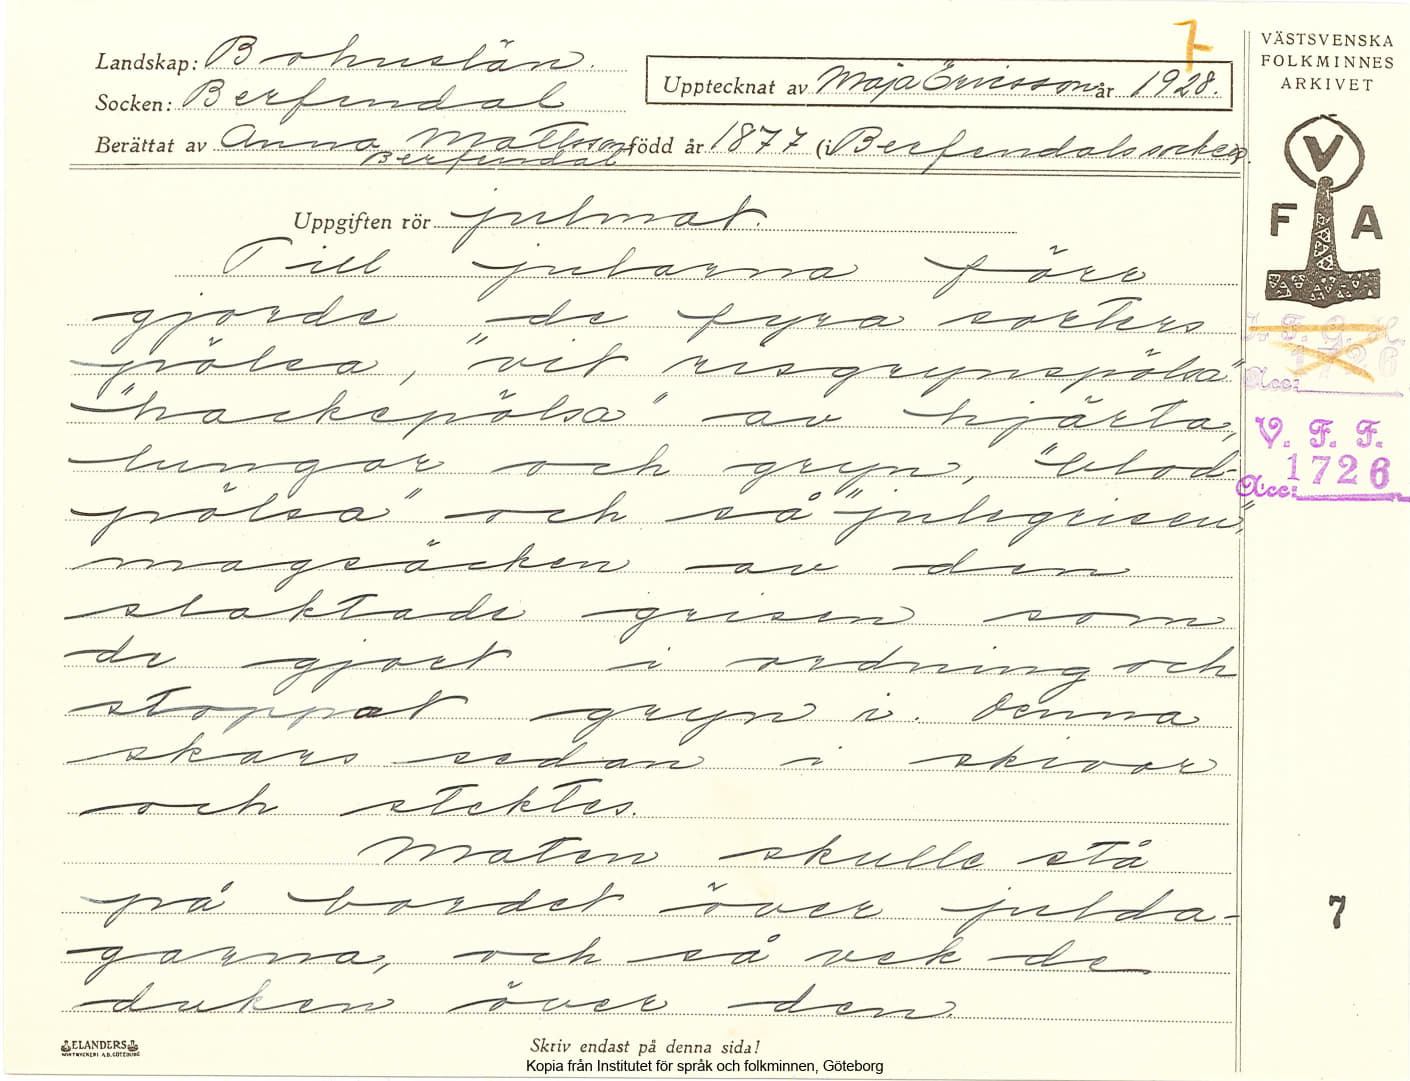 7
VÄSTSVENSKA
FOLKMINNES
ARKIVET
Landskap: Bohuslän.
Upptecknat av Maja Ericsson år 1928.
Socken: Berfendal
Berättat av Anna Mattsson född år 1877 (i Berfendals socken).
Berfendal
V
F A
Uppgiften rör julmat.
Till jularna förr
gjorde de fyra sorters
pölsa, "vit risgrynspölsa"
"hackepölsa" av hjärta,
lungor och gryn, "blod-
pölsa" och så "julegrisen",
magsäcken av den
slaktade grisen som
de gjort i ordning och
stoppat gryn i. Denna
skars sedan i skivor
och stektes.
Maten skulle stå
på bordet över julda-
garna, och så vek de
duken över den.
1726
Acc:
V. F. F.
1726
Acc:
7
ELANDERS
Skriv endast på denna sida!
Kopia från Institutet för språk och folkminnen, Göteborg